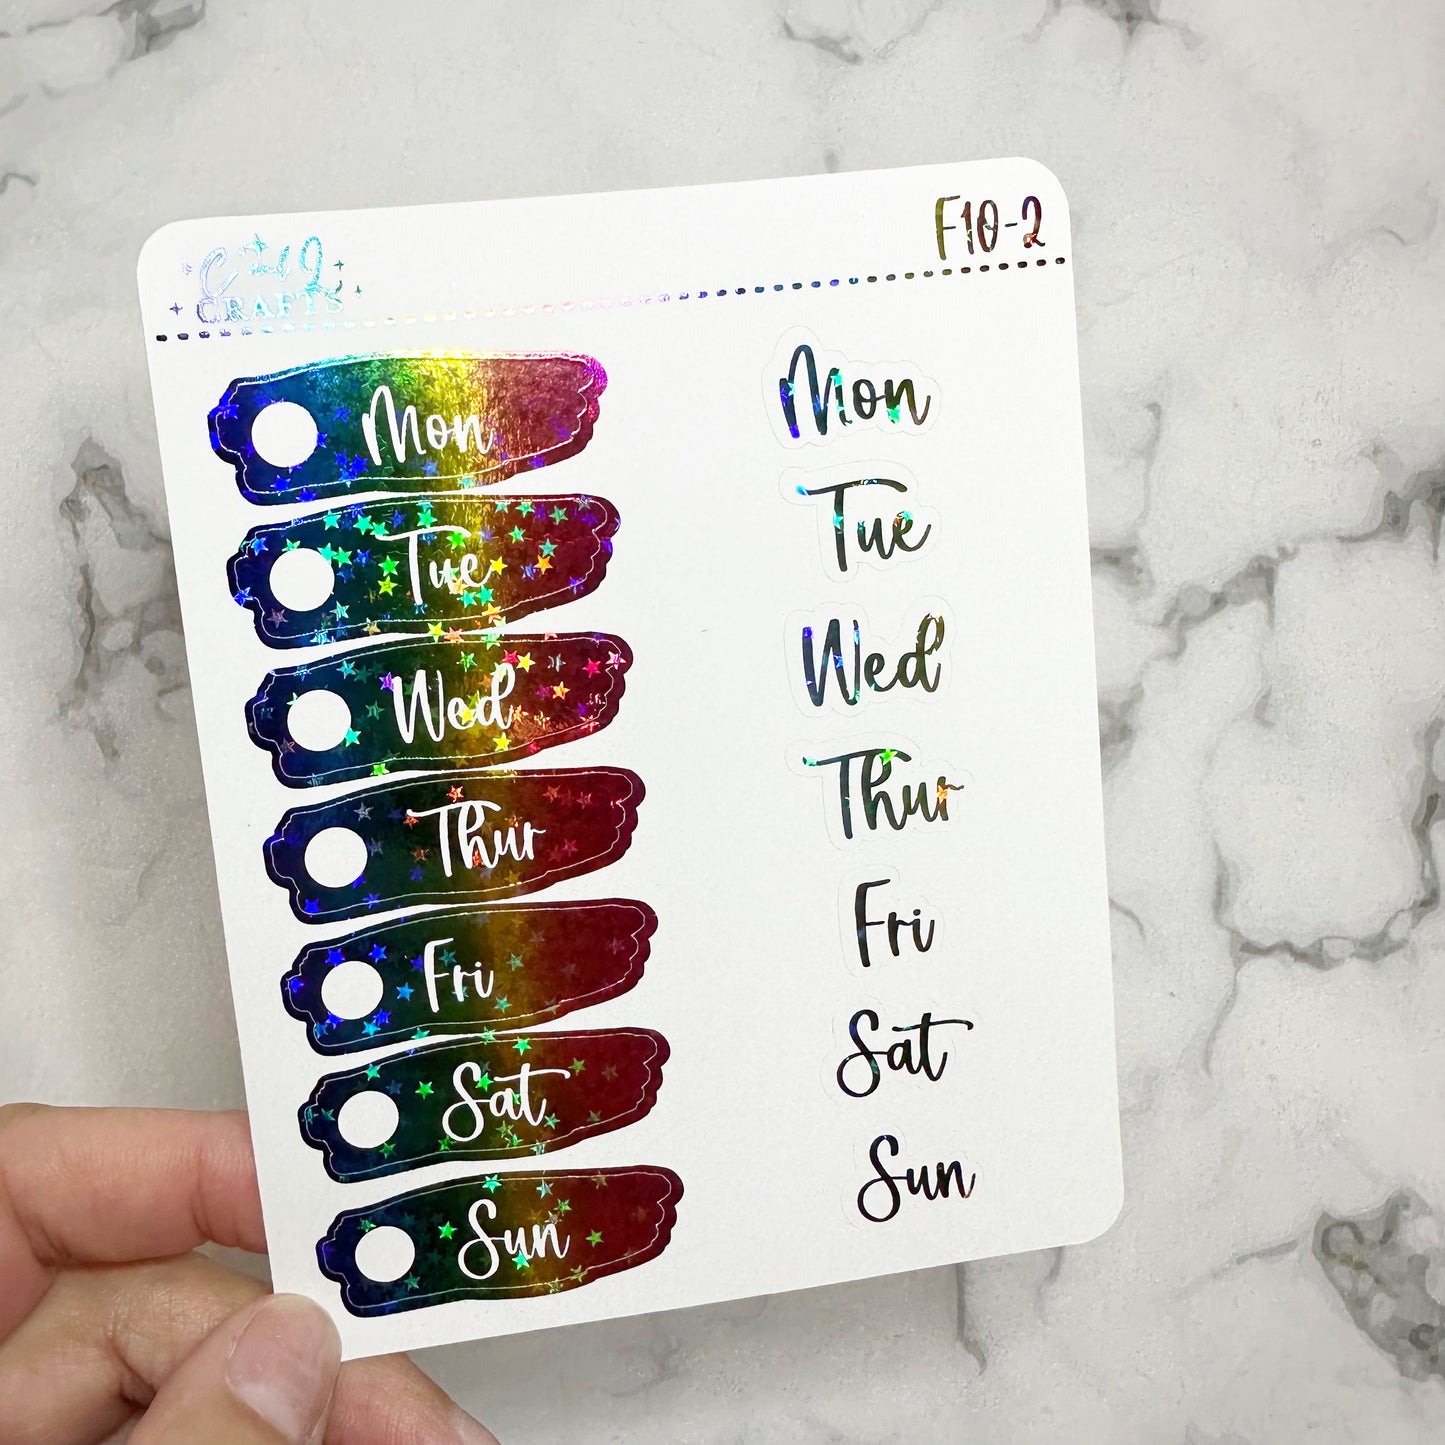 C and J
CRAFTS
F10-2
Mon
Tue
Wed
Thur
Fri
Sat
Sun
Mon
Tue
Wed
Thur
Fri
Sat
Sun